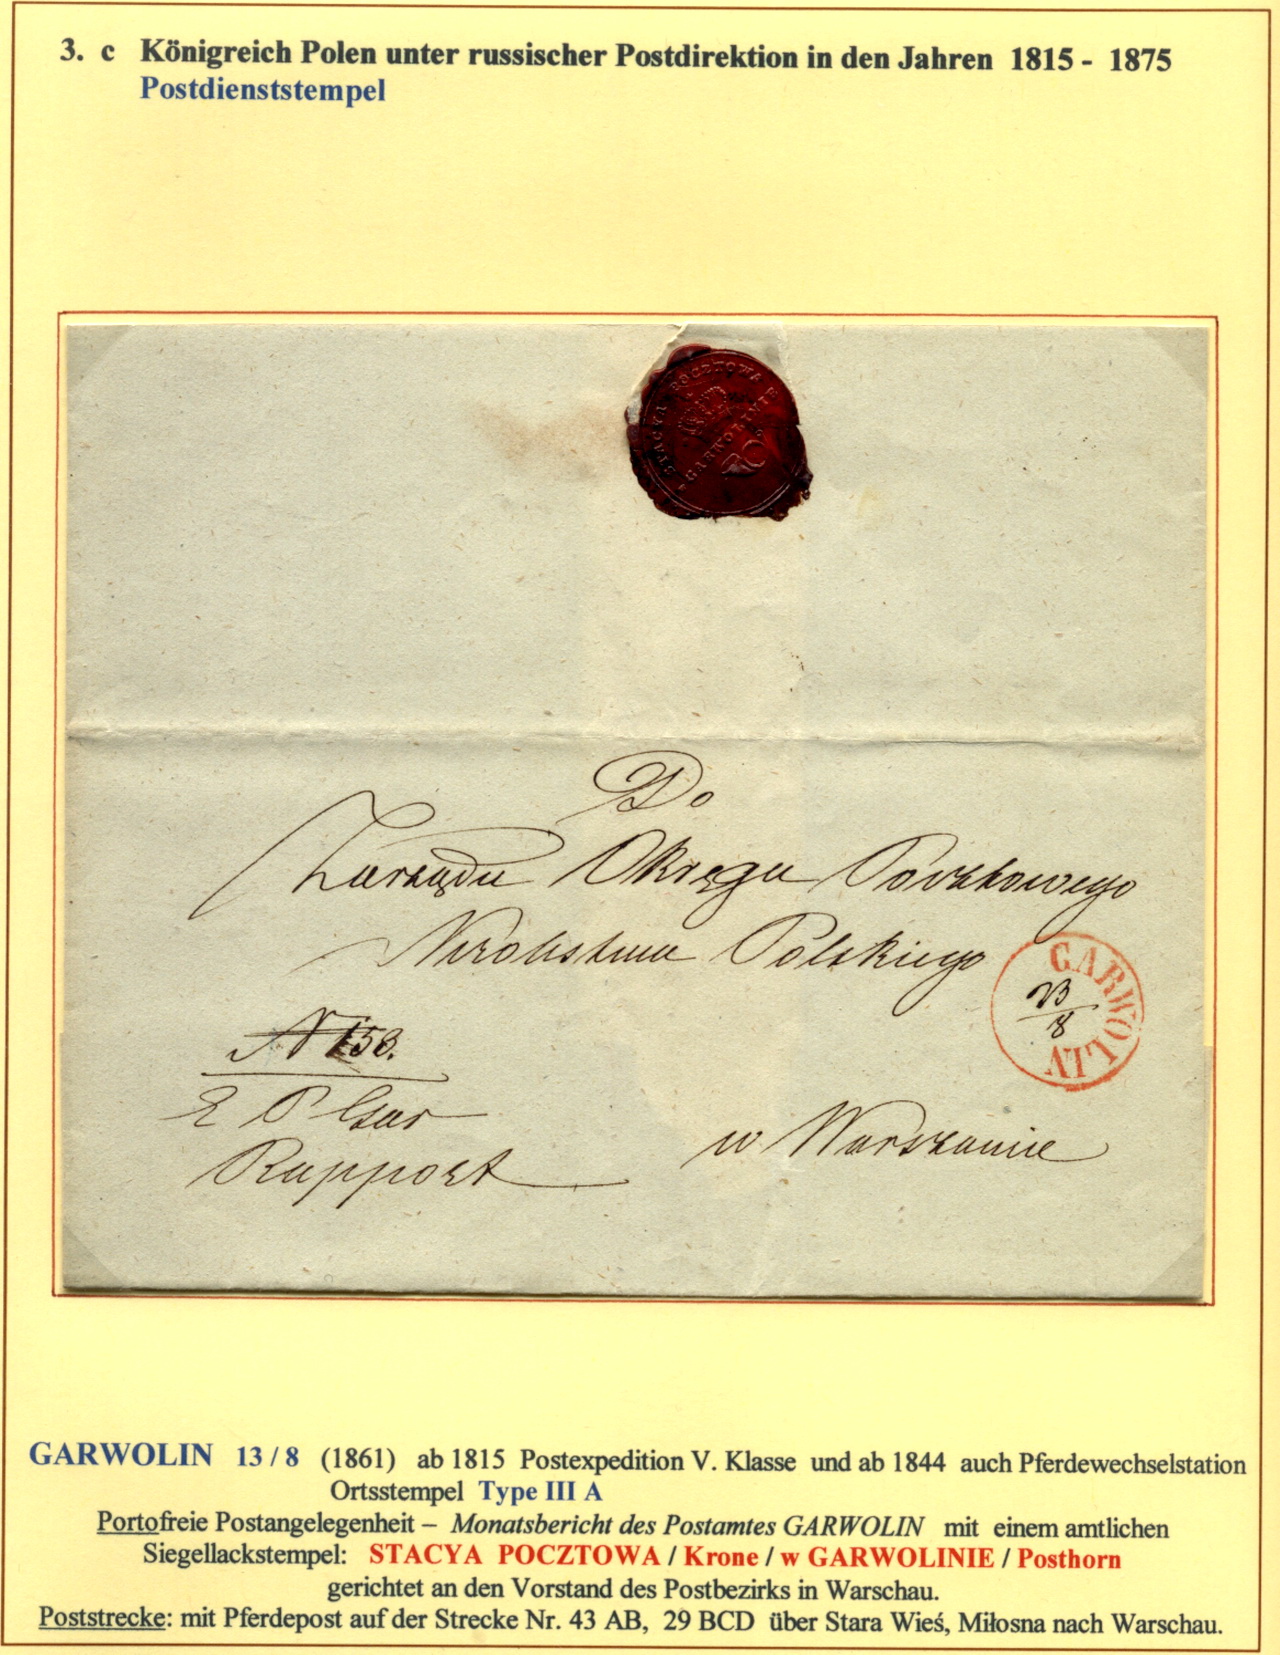 3. c Königreich Polen unter russischer Postdirektion in den Jahren 1815 - 1875
Postdienststempel
STACYA POCZTOWA W
GARWOLINIE
Do
Zarządu Okręgu Pocztowego
Królestwa Polskiego
GARWOLIN
/8
N 158.
E P Gar
Rapport
w Warszawie
GARWOLIN 13 / 8 (1861) ab 1815 Postexpedition V. Klasse und ab 1844 auch Pferdewechselstation
Ortsstempel Type III A
Portofreie Postangelegenheit – Monatsbericht des Postamtes GARWOLIN mit einem amtlichen
Siegellackstempel: STACYA POCZTOWA / Krone / w GARWOLINIE / Posthorn
gerichtet an den Vorstand des Postbezirks in Warschau.
Poststrecke: mit Pferdepost auf der Strecke Nr. 43 AB, 29 BCD über Stara Wieś, Miłosna nach Warschau.